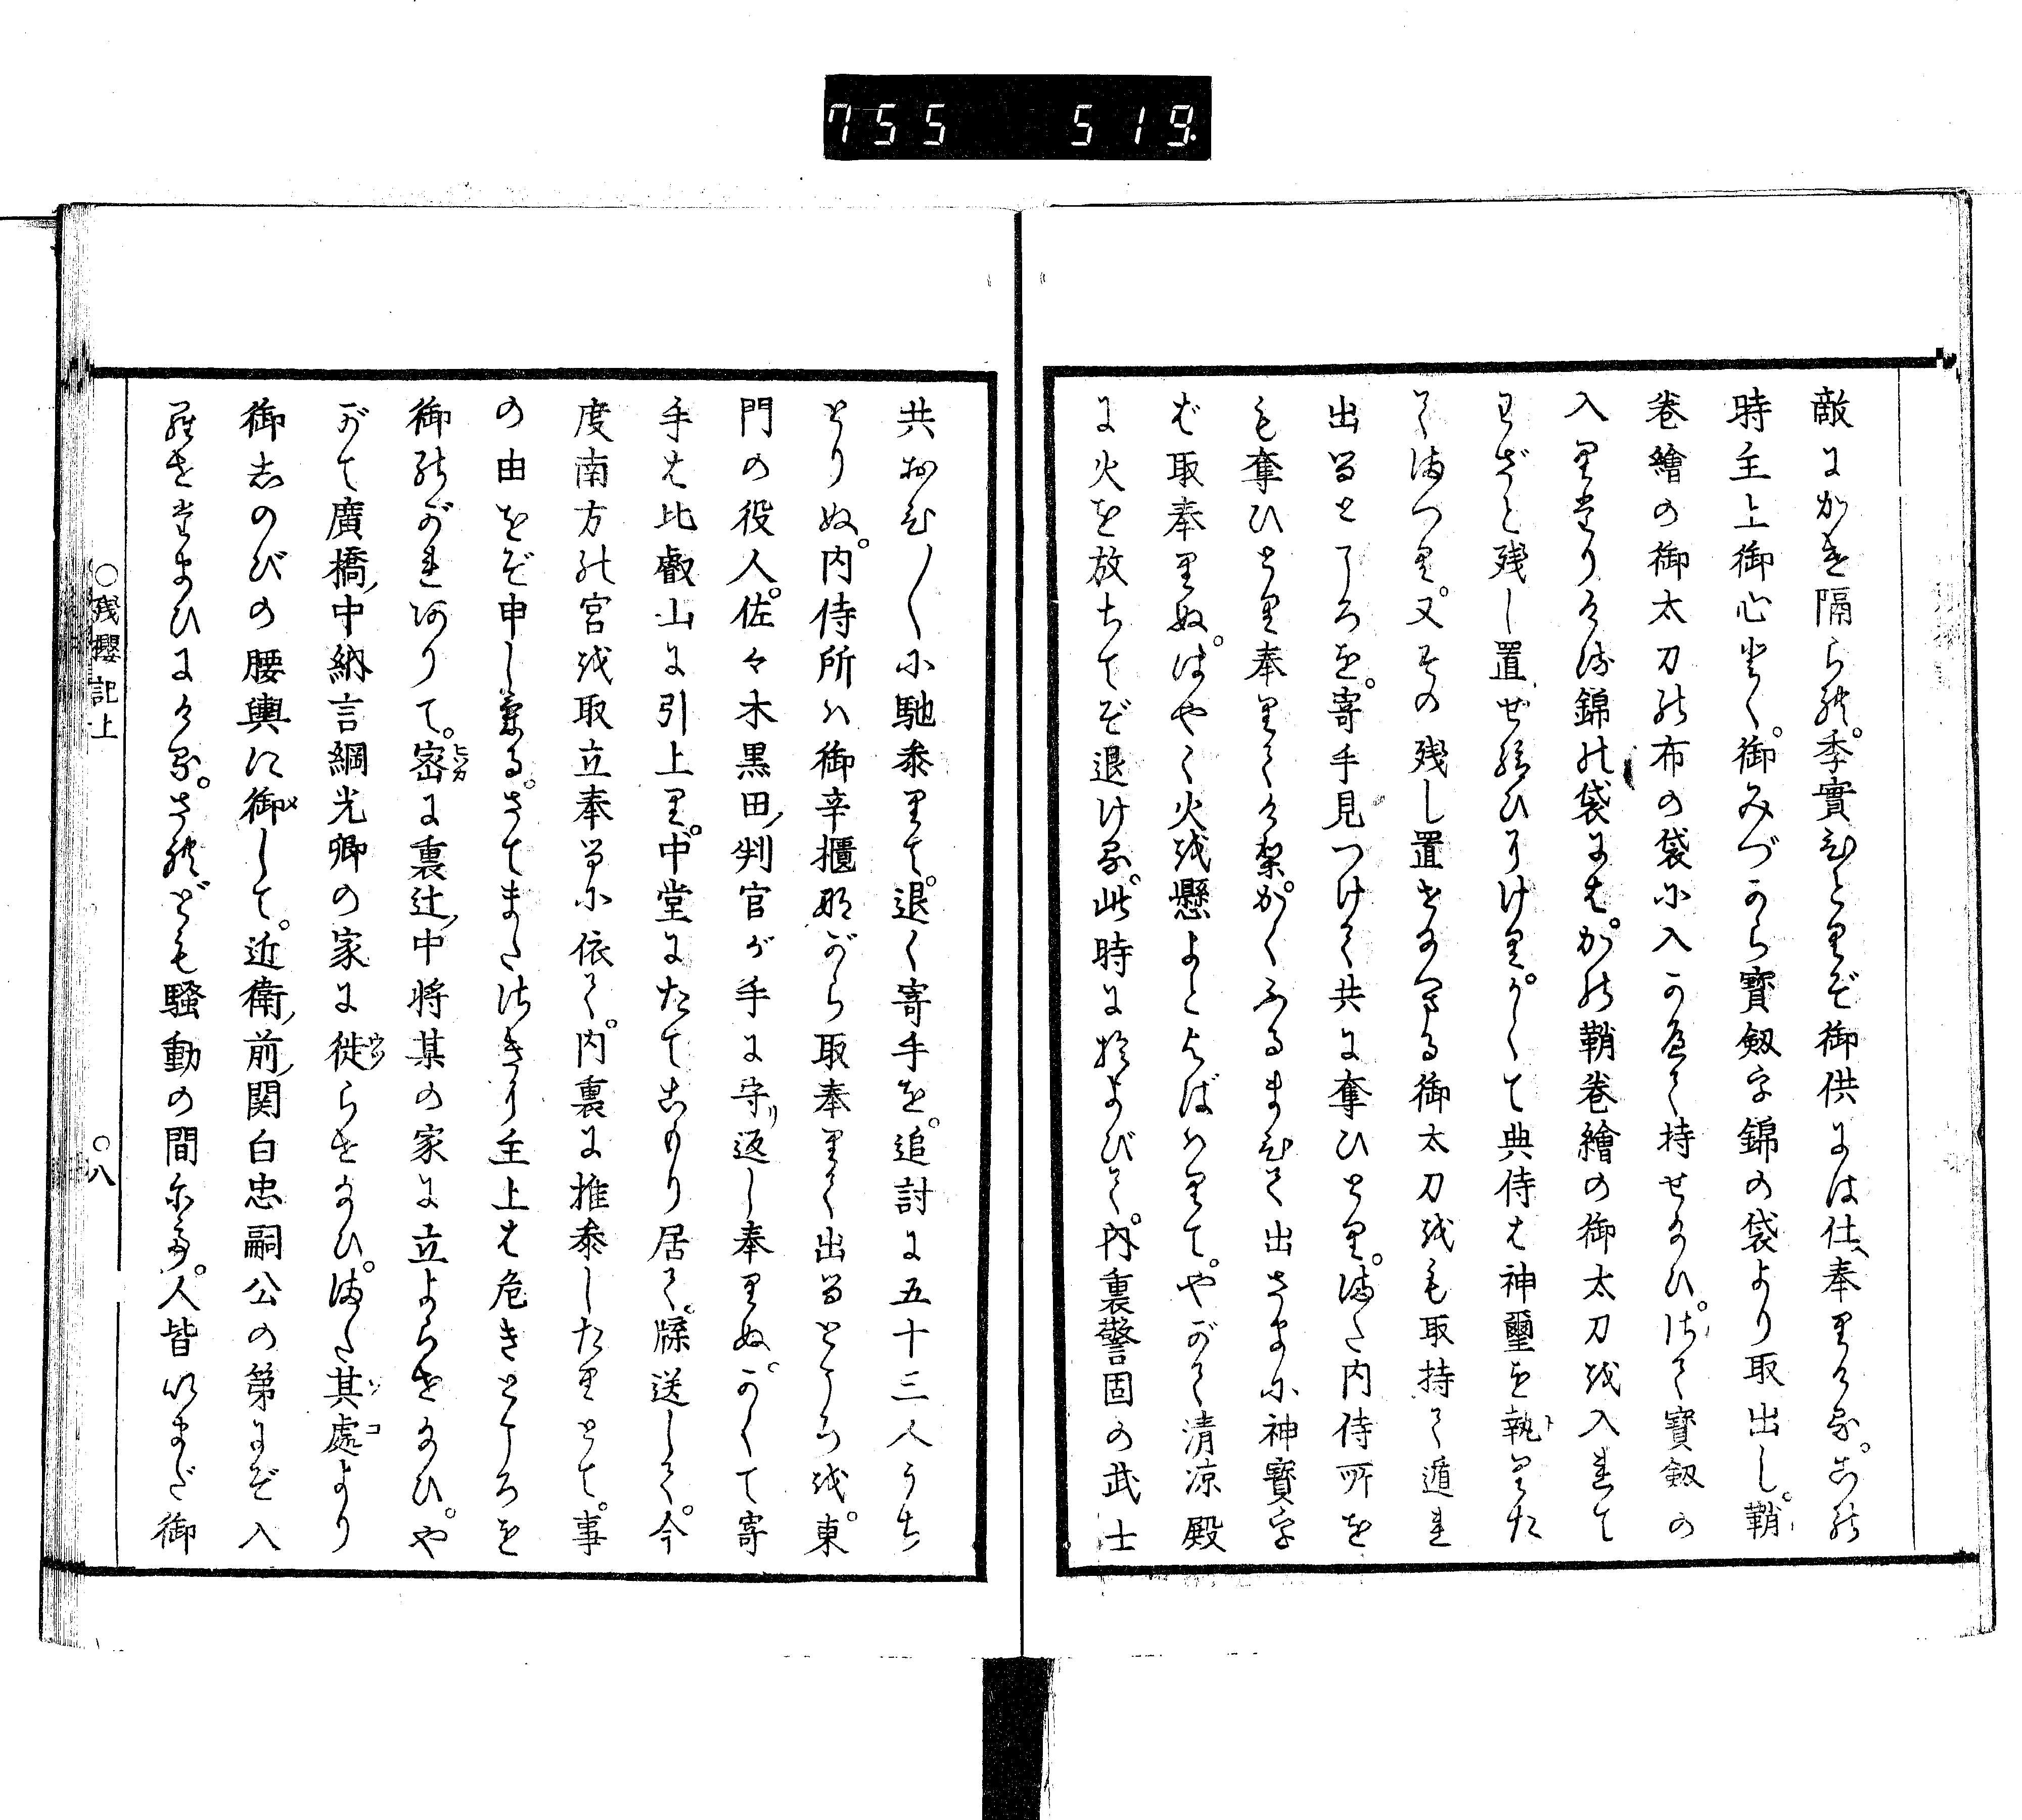 755 519
敵にかけ隔られ。季實ひとりぞ御供には仕へ奉りける。この
時主上御心とく。御みづから寶劔を錦の袋より取出し。鞘
卷繪の御太刀の布の袋に入かへて持せ給ひ。さて寶劔の
入りたりける錦の袋には。かの鞘卷繪の御太刀を入れて
わざと残し置せ給ひけり。かくて典侍は神璽を執りた
てまつり。又その残し置せ給へる御太刀をも取持て遁れ
出るところを。寄手見つけて共に奪ひとり。また内侍所を
も奪ひとり奉りてけり。かくふるまひて出さまに神寶を
ば取奉りぬ。はやく火を懸よとよばはりて。やがて清凉殿
に火を放ちてぞ退ける。此時におよびて。内裏警固の武士
共おひ〳〵に馳參りて。退く寄手を。追討に五十三人うち
とりぬ。内侍所ハ御辛櫃ながら取奉りて出るところを。東
門の役人。佐々木黒田ノ判官が手に守リ返し奉りぬ。かくて寄
手は比叡山に引上り。中堂にたてこもり居て。牒送して。今
度南方の宮を取立奉るに依て。内裏に推參したりとて。事
の由をぞ申し棄る。さてまたはきり主上は危きところを
御のがれありて。密ヒソカに裏辻ノ中将某の家に立よらせ給ひ。や
がて廣橋ノ中納言綱光卿の家に徙ウツらせ給ひ。また其處ソコより
御志のびの腰輿に御メして。近衛ノ前ノ関白忠嗣公の第にぞ入
らせたまひにける。されども騒動の間にて。人皆いまだ御
○残櫻記上
○八